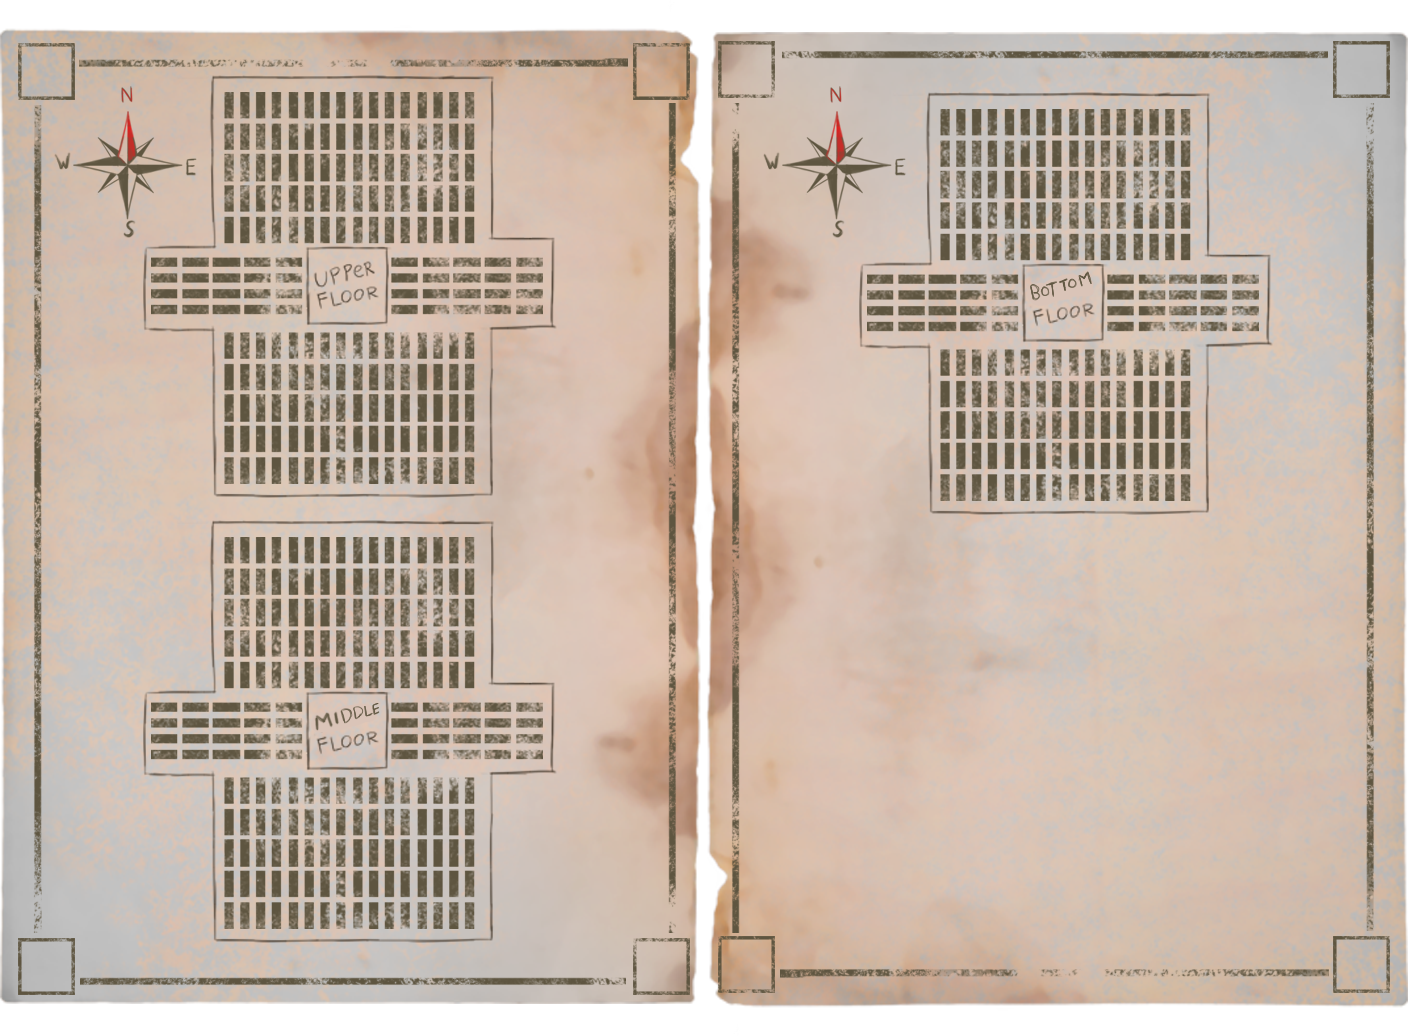 N
W E
S
UPPER
FLOOR
MIDDLE
FLOOR
N
W E
S
BOTTOM
FLOOR